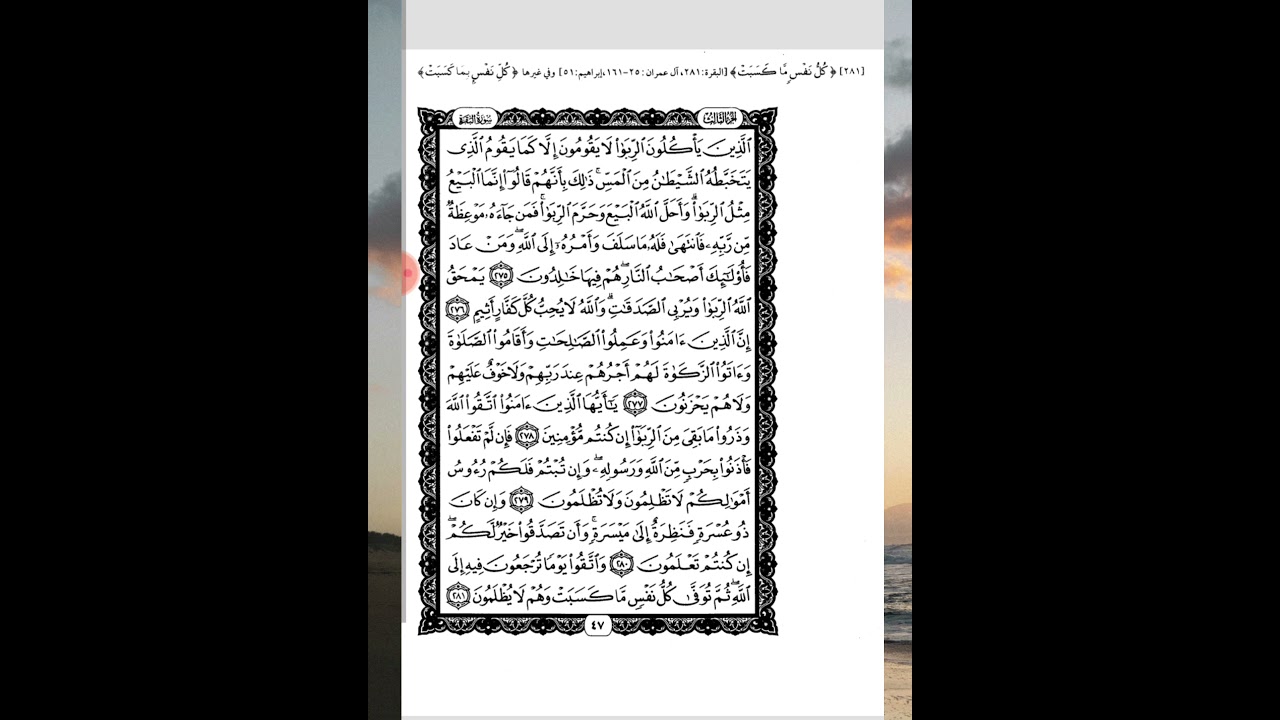 [٢٨١] ﴿كُلُّ نَفْسٍ مَّا كَسَبَتْ﴾ [البقرة: ٢٨١، آل عمران: ٢٥-١٦١، إبراهيم: ٥١] وفي غيرها ﴿كُلِّ نَفْسٍ بِمَا كَسَبَتْ﴾
الجزء الثالث سورة البقرة
ٱلَّذِينَ يَأْكُلُونَ ٱلرِّبَوٰا۟ لَا يَقُومُونَ إِلَّا كَمَا يَقُومُ ٱلَّذِى
يَتَخَبَّطُهُ ٱلشَّيْطَٰنُ مِنَ ٱلْمَسِّ ۚ ذَٰلِكَ بِأَنَّهُمْ قَالُوٓا۟ إِنَّمَا ٱلْبَيْعُ
مِثْلُ ٱلرِّبَوٰا۟ ۗ وَأَحَلَّ ٱللَّهُ ٱلْبَيْعَ وَحَرَّمَ ٱلرِّبَوٰا۟ ۚ فَمَن جَآءَهُۥ مَوْعِظَةٌ
مِّن رَّبِّهِۦ فَٱنتَهَىٰ فَلَهُۥ مَا سَلَفَ وَأَمْرُهُۥٓ إِلَى ٱللَّهِ ۖ وَمَنْ عَادَ
فَأُو۟لَٰٓئِكَ أَصْحَٰبُ ٱلنَّارِ ۖ هُمْ فِيهَا خَٰلِدُونَ ٢٧٥ يَمْحَقُ
ٱللَّهُ ٱلرِّبَوٰا۟ وَيُرْبِى ٱلصَّدَقَٰتِ ۗ وَٱللَّهُ لَا يُحِبُّ كُلَّ كَفَّارٍ أَثِيمٍ ٢٧٦
إِنَّ ٱلَّذِينَ ءَامَنُوا۟ وَعَمِلُوا۟ ٱلصَّٰلِحَٰتِ وَأَقَامُوا۟ ٱلصَّلَوٰةَ
وَءَاتَوُا۟ ٱلزَّكَوٰةَ لَهُمْ أَجْرُهُمْ عِندَ رَبِّهِمْ وَلَا خَوْفٌ عَلَيْهِمْ
وَلَا هُمْ يَحْزَنُونَ ٢٧٧ يَٰٓأَيُّهَا ٱلَّذِينَ ءَامَنُوا۟ ٱتَّقُوا۟ ٱللَّهَ
وَذَرُوا۟ مَا بَقِىَ مِنَ ٱلرِّبَوٰٓا۟ إِن كُنتُم مُّؤْمِنِينَ ٢٧٨ فَإِن لَّمْ تَفْعَلُوا۟
فَأْذَنُوا۟ بِحَرْبٍ مِّنَ ٱللَّهِ وَرَسُولِهِۦ ۖ وَإِن تُبْتُمْ فَلَكُمْ رُءُوسُ
أَمْوَٰلِكُمْ لَا تَظْلِمُونَ وَلَا تُظْلَمُونَ ٢٧٩ وَإِن كَانَ
ذُو عُسْرَةٍ فَنَظِرَةٌ إِلَىٰ مَيْسَرَةٍ ۚ وَأَن تَصَدَّقُوا۟ خَيْرٌ لَّكُمْ ۖ
إِن كُنتُمْ تَعْلَمُونَ ٢٨٠ وَٱتَّقُوا۟ يَوْمًا تُرْجَعُونَ فِيهِ إِلَى
ٱللَّهِ ۖ ثُمَّ تُوَفَّىٰ كُلُّ نَفْسٍ مَّا كَسَبَتْ وَهُمْ لَا يُظْلَمُونَ ٢٨١
٤٧